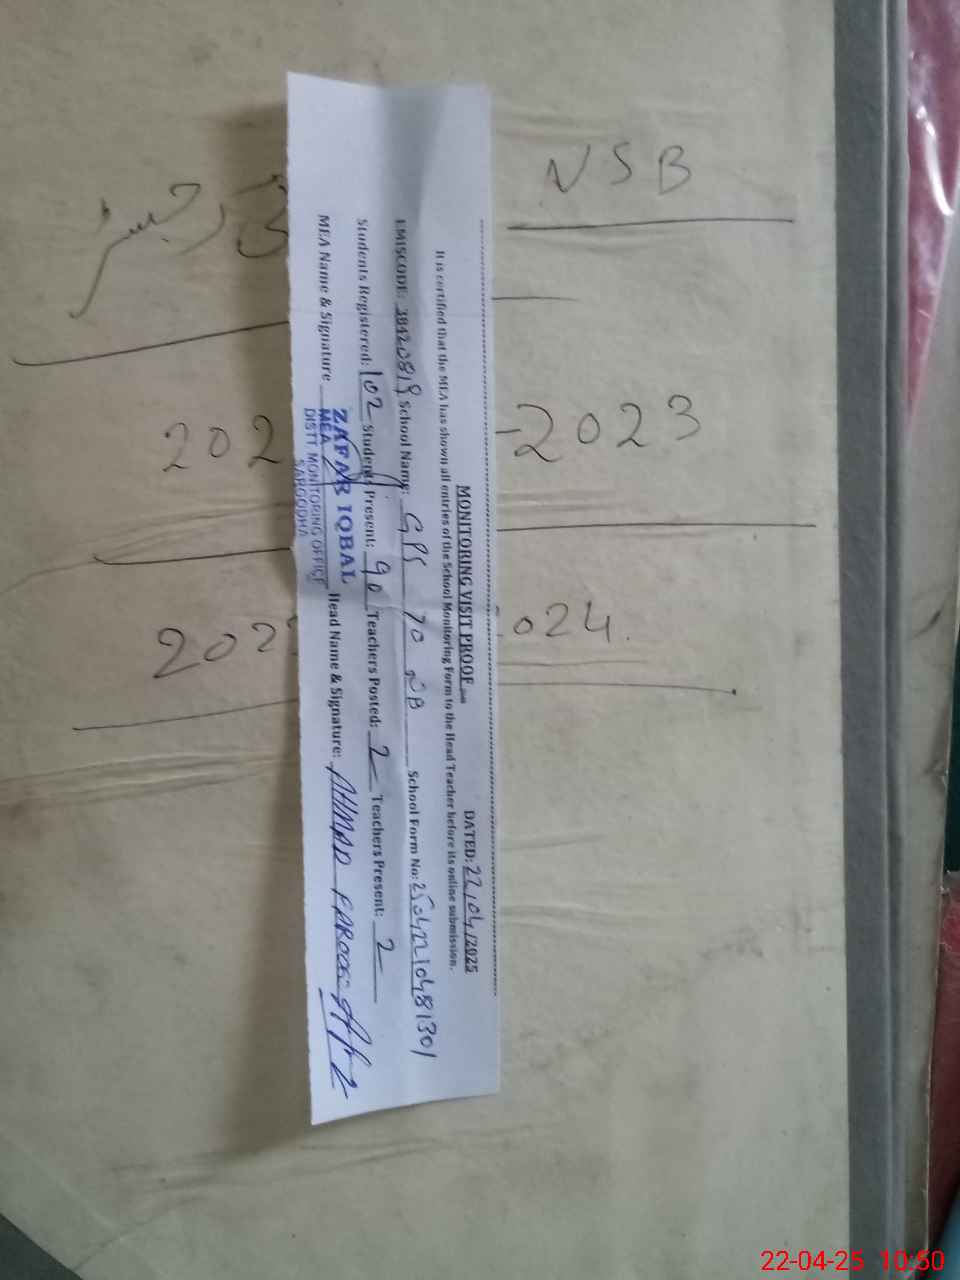 NSB
2023
2024
MONITORING VISIT PROOF DATED: 22/04/2025
It is certified that the MEA has shown all entries of the School Monitoring Form to the Head Teacher before its online submission.
EMISCODE: 38420819 School Name: GPS 70 NB School Form No: 
Students Registered: 102 Students Present: 90 Teachers Posted: 2 Teachers Present: 2
MEA Name & Signature Head Name & Signature: AHMAD FAROOQ
ZAFAR IQBAL
MEA
DISTT. MONITORING OFFICE
SARGODHA
22-04-25 10:50